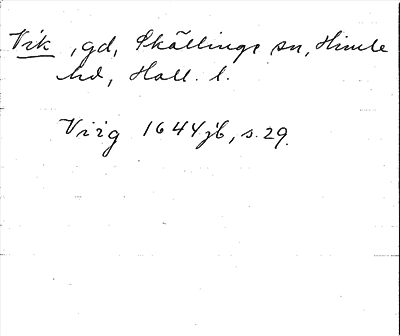 Vik, gd, Skällinge sn, Himle
hd, Hall. l.
Viig 1644jb, s. 29.